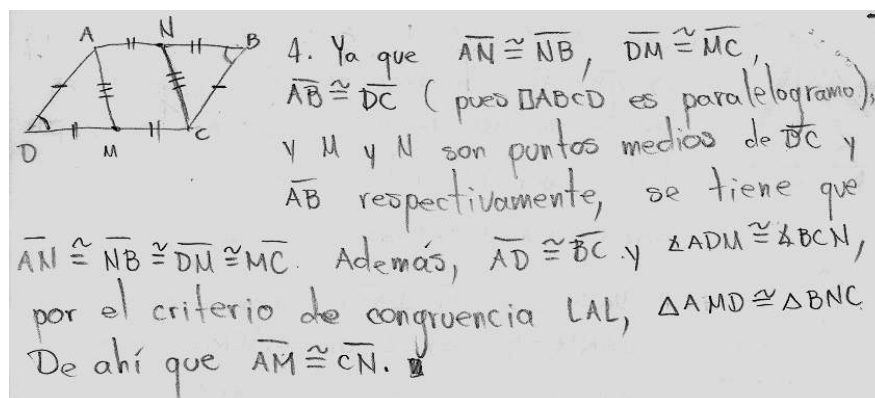 A N B
D M C
4. Ya que A̅N̅ ≅ N̅B̅, D̅M̅ ≅ M̅C̅,
A̅B̅ ≅ D̅C̅ (pues □ABCD es paralelogramo),
y M y N son puntos medios de D̅C̅ y
A̅B̅ respectivamente, se tiene que
A̅N̅ ≅ N̅B̅ ≅ D̅M̅ ≅ M̅C̅. Además, A̅D̅ ≅ B̅C̅ y ∡ADM ≅ ∡BCN,
por el criterio de congruencia LAL, △AMD ≅ △BNC
De ahí que A̅M̅ ≅ C̅N̅.